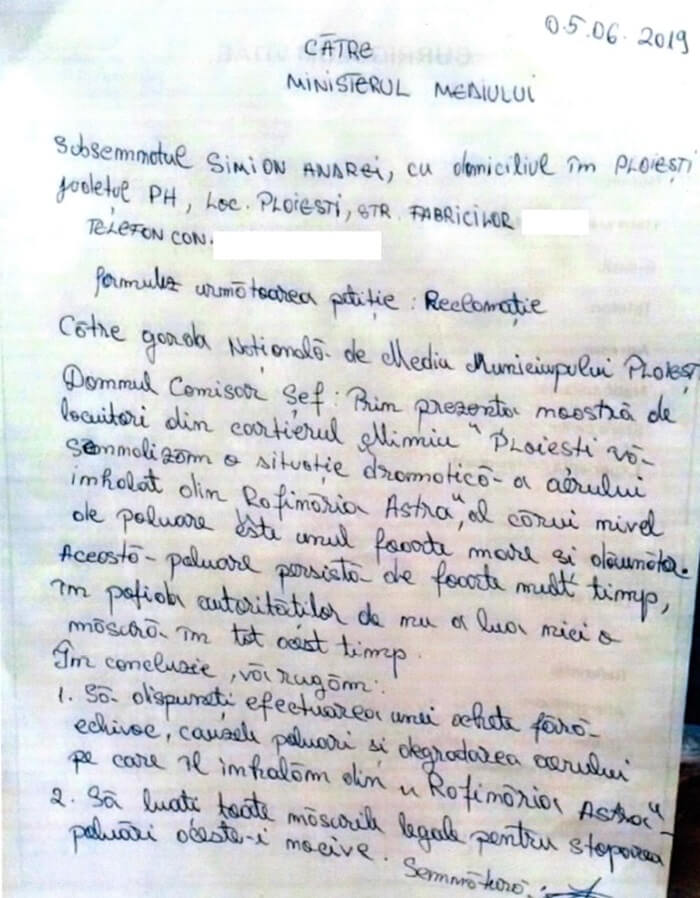 05.06.2019
CĂTRE
MINISTERUL MEDIULUI
Subsemnatul SIMION ANDREI, cu domiciliul în PLOIEȘTI
județul PH, LOC. PLOIESTI, STR. FABRICILOR
TELEFON CON.
formulez următoarea petiție: Reclamație
Către garda Națională de Mediu Municiupului PLOIEȘT
Domnul Comisar Șef: Prin prezenta noastră de
locuitori din cartierul "Mimiu" PLOIESTI vă-
semnalizăm o situație dramatică a aerului
inhalat din Rafinăria Astra", al cărui nivel
de poluare este unul foarte mare si dăunător.
Această poluare persistă de foarte mult timp,
în pofida autorităților de nu a lua nici o
măsură în tot acest timp.
În concluzie, vă rugăm:
1. Să dispuneți efectuarea unei fără
echivoc, cauzele poluari si degradarea aerului
pe care îl inhalăm din "Rafinăria Astra"
2. Să luati toate măsurile legale pentru stoparea
poluări nocive. Semnătură: